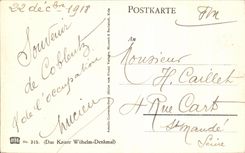 22 décbre 1918
POSTKARTE
Fm
Souvenir
de Coblentz
& de l'occupation
Lucien
An
Monsieur
H. Caillet
4 Rue Cart
St Mandé
Seine
No. 315. (Das Kaiser Wilhelm-Denkmal)